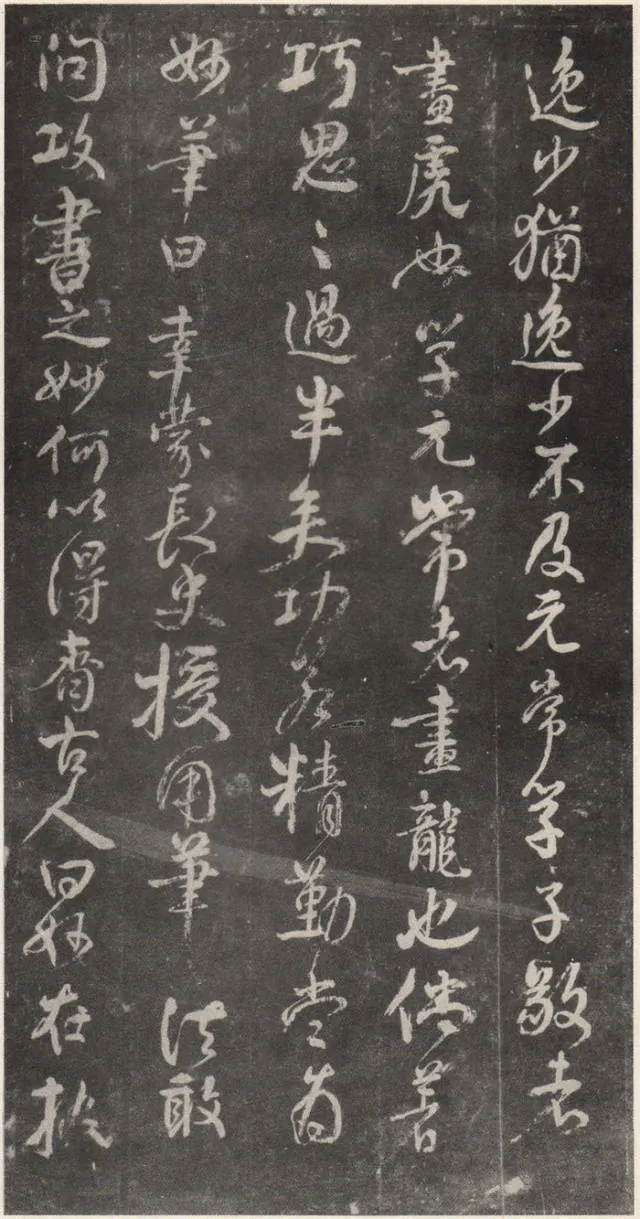 逸少猶逸少不及元常學子敬者
畫虎也學元常者畫龍也倘善
巧思〻過半矣功若精勤當爲
妙筆曰幸蒙長史授用筆法敢
問攻書之妙何以得齊古人曰妙在執